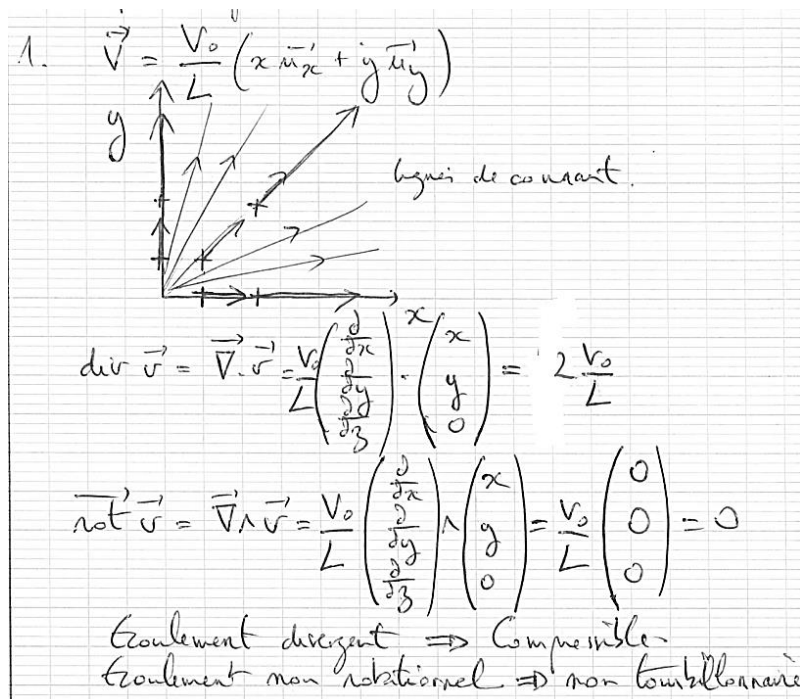 1. $\vec{V} = \frac{V_0}{L} (x \vec{u_x} + y \vec{u_y})$
y
lignes de courant.
x
$\text{div } \vec{v} = \vec{\nabla} . \vec{v} = \frac{V_0}{L} \begin{pmatrix} \frac{\partial}{\partial x} \\ \frac{\partial}{\partial y} \\ \frac{\partial}{\partial z} \end{pmatrix} \cdot \begin{pmatrix} x \\ y \\ 0 \end{pmatrix} = 2 \frac{V_0}{L}$
$\overrightarrow{\text{rot}} \, \vec{v} = \vec{\nabla} \wedge \vec{v} = \frac{V_0}{L} \begin{pmatrix} \frac{\partial}{\partial x} \\ \frac{\partial}{\partial y} \\ \frac{\partial}{\partial z} \end{pmatrix} \wedge \begin{pmatrix} x \\ y \\ 0 \end{pmatrix} = \frac{V_0}{L} \begin{pmatrix} 0 \\ 0 \\ 0 \end{pmatrix} = 0$
Ecoulement divergent ⇒ Compressible.
Ecoulement non rotationnel ⇒ non tourbillonnaire